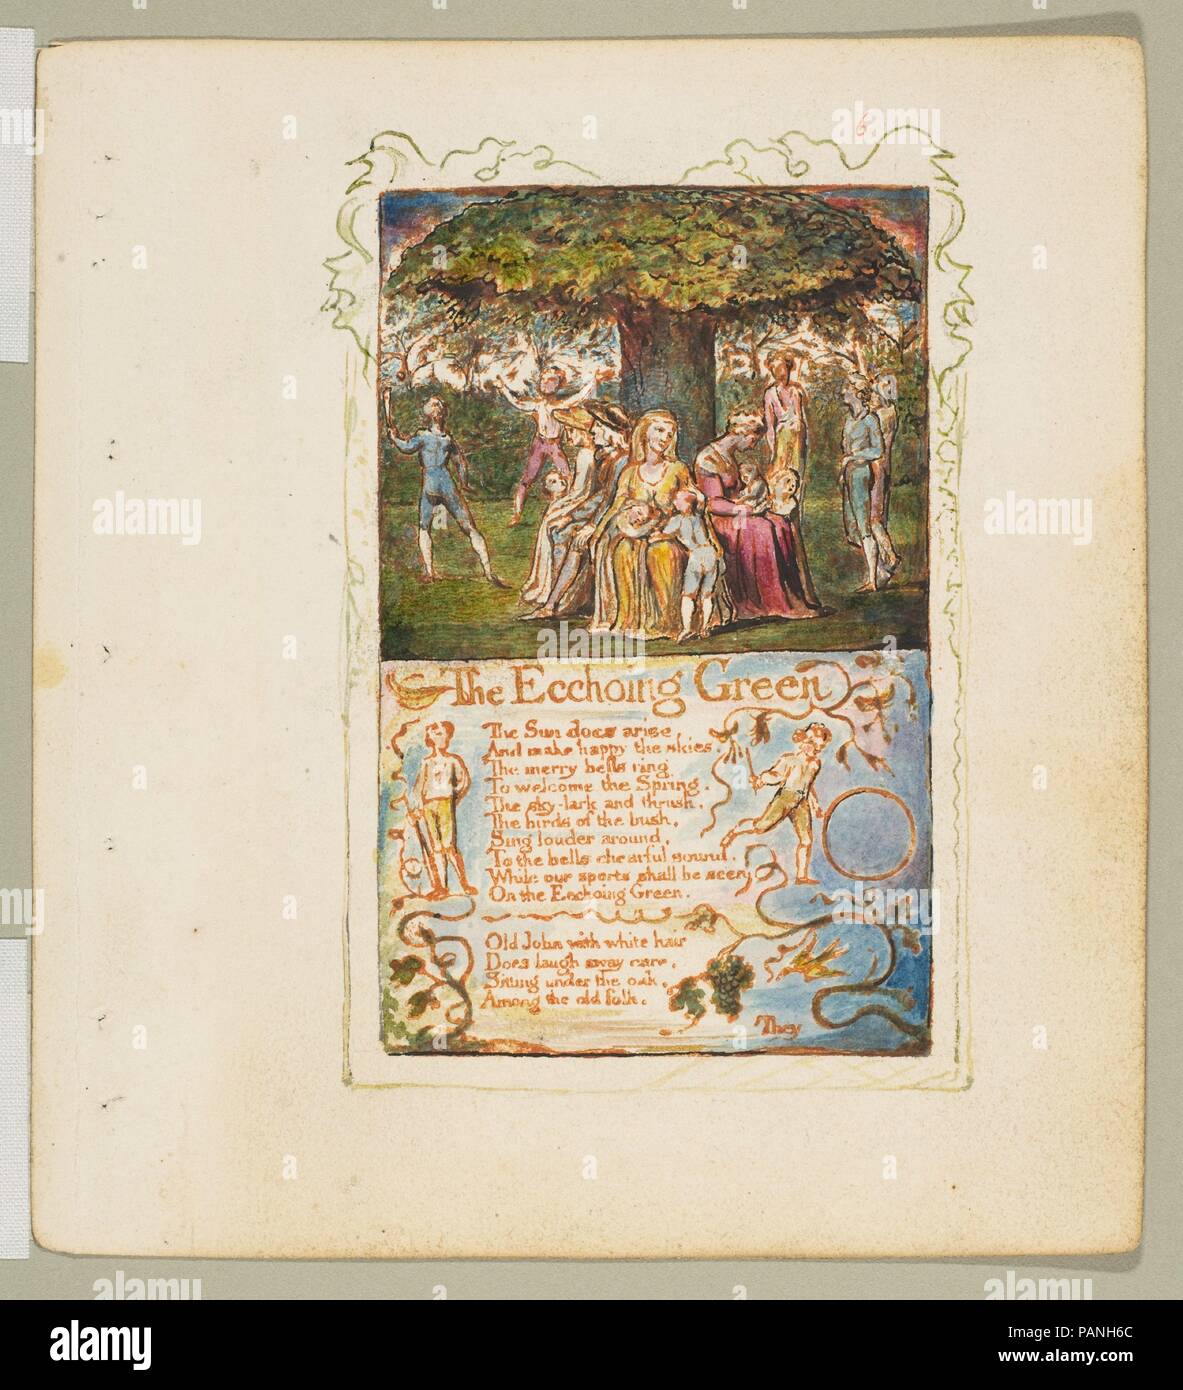 6
The Ecchoing Green
The Sun does arise,
And make happy the skies.
The merry bells ring
To welcome the Spring.
The sky-lark and thrush,
The birds of the bush,
Sing louder around,
To the bells chearful sound.
While our sports shall be seen
On the Ecchoing Green.
Old John with white hair
Does laugh away care,
Sitting under the oak,
Among the old folk.
They
alamy
Image ID: PANH6C
www.alamy.com